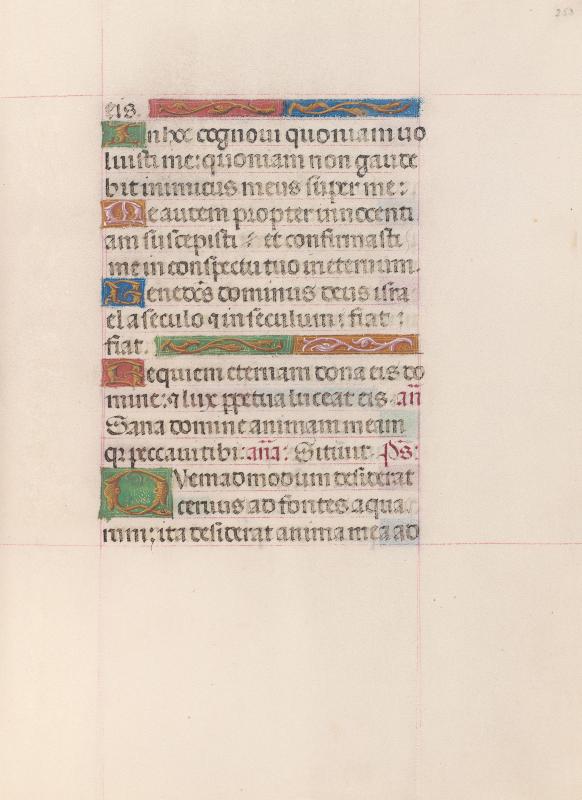 253
eis.
In hoc cognoui quoniam uo
luisti me: quoniam non gaude
bit inimicus meus super me:
Me autem propter innocenti
am suscepisti: et confirmasti
me in conspectu tuo in eternum.
Benedcs dominus deus isra
el a seculo ⁊ in seculum: fiat:
fiat.
Requiem eternam dona eis do
mine: ⁊ lux ppetua luceat eis. añ
Sana domine animam meam
qꝛ peccaui tibi. aña: Sitiuit. Ps:
Quemadmodum desiderat
ceruus ad fontes aqua
rum: ita desiderat anima mea ad